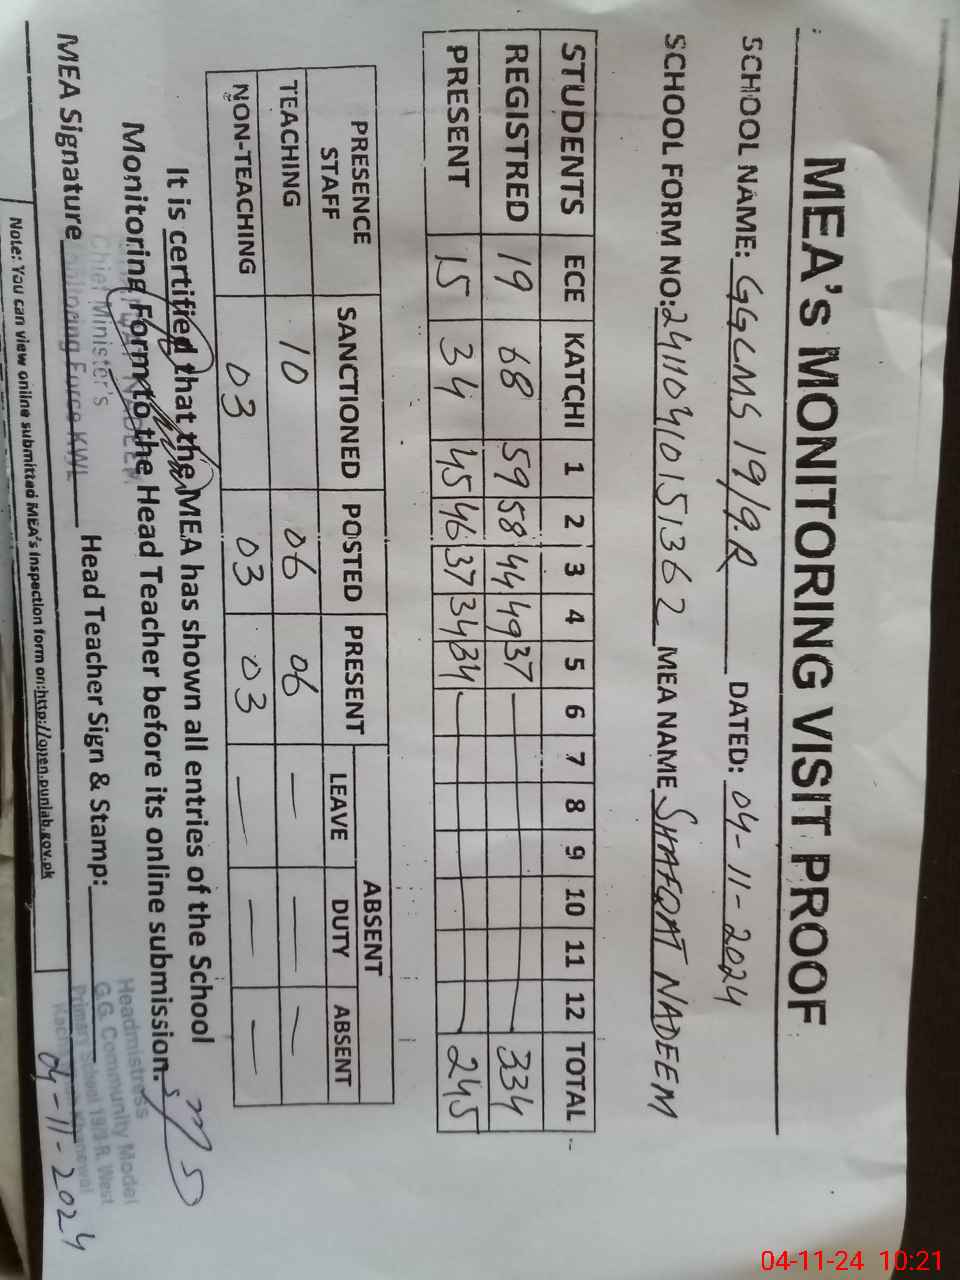 MEA's MONITORING VISIT PROOF
SCHOOL NAME: GGCMS 19/9.R DATED: 04-11-2024
SCHOOL FORM NO: 24110410151362 MEA NAME SHAFQAT NADEEM
STUDENTS ECE KATCHI 1 2 3 4 5 6 7 8 9 10 11 12 TOTAL
REGISTRED 19 68 59 58 44 49 37 334
PRESENT 15 34 45 46 37 34 34 245
PRESENCE STAFF SANCTIONED POSTED PRESENT ABSENT
LEAVE DUTY ABSENT
TEACHING 10 06 06 — — —
NON-TEACHING 03 03 03 — — —
It is certified that the MEA has shown all entries of the School
Monitoring Form to the Head Teacher before its online submission.
NADEEM
Chief Minister's
Monitoring Force KWL
MEA Signature Head Teacher Sign & Stamp:
Headmistress
G.G. Community Model
Primary School 19/9.R. West
Khanewal
04-11-2024
Note: You can view online submitted MEA's inspection form on:http://open.punjab.gov.pk
04-11-24 10:21